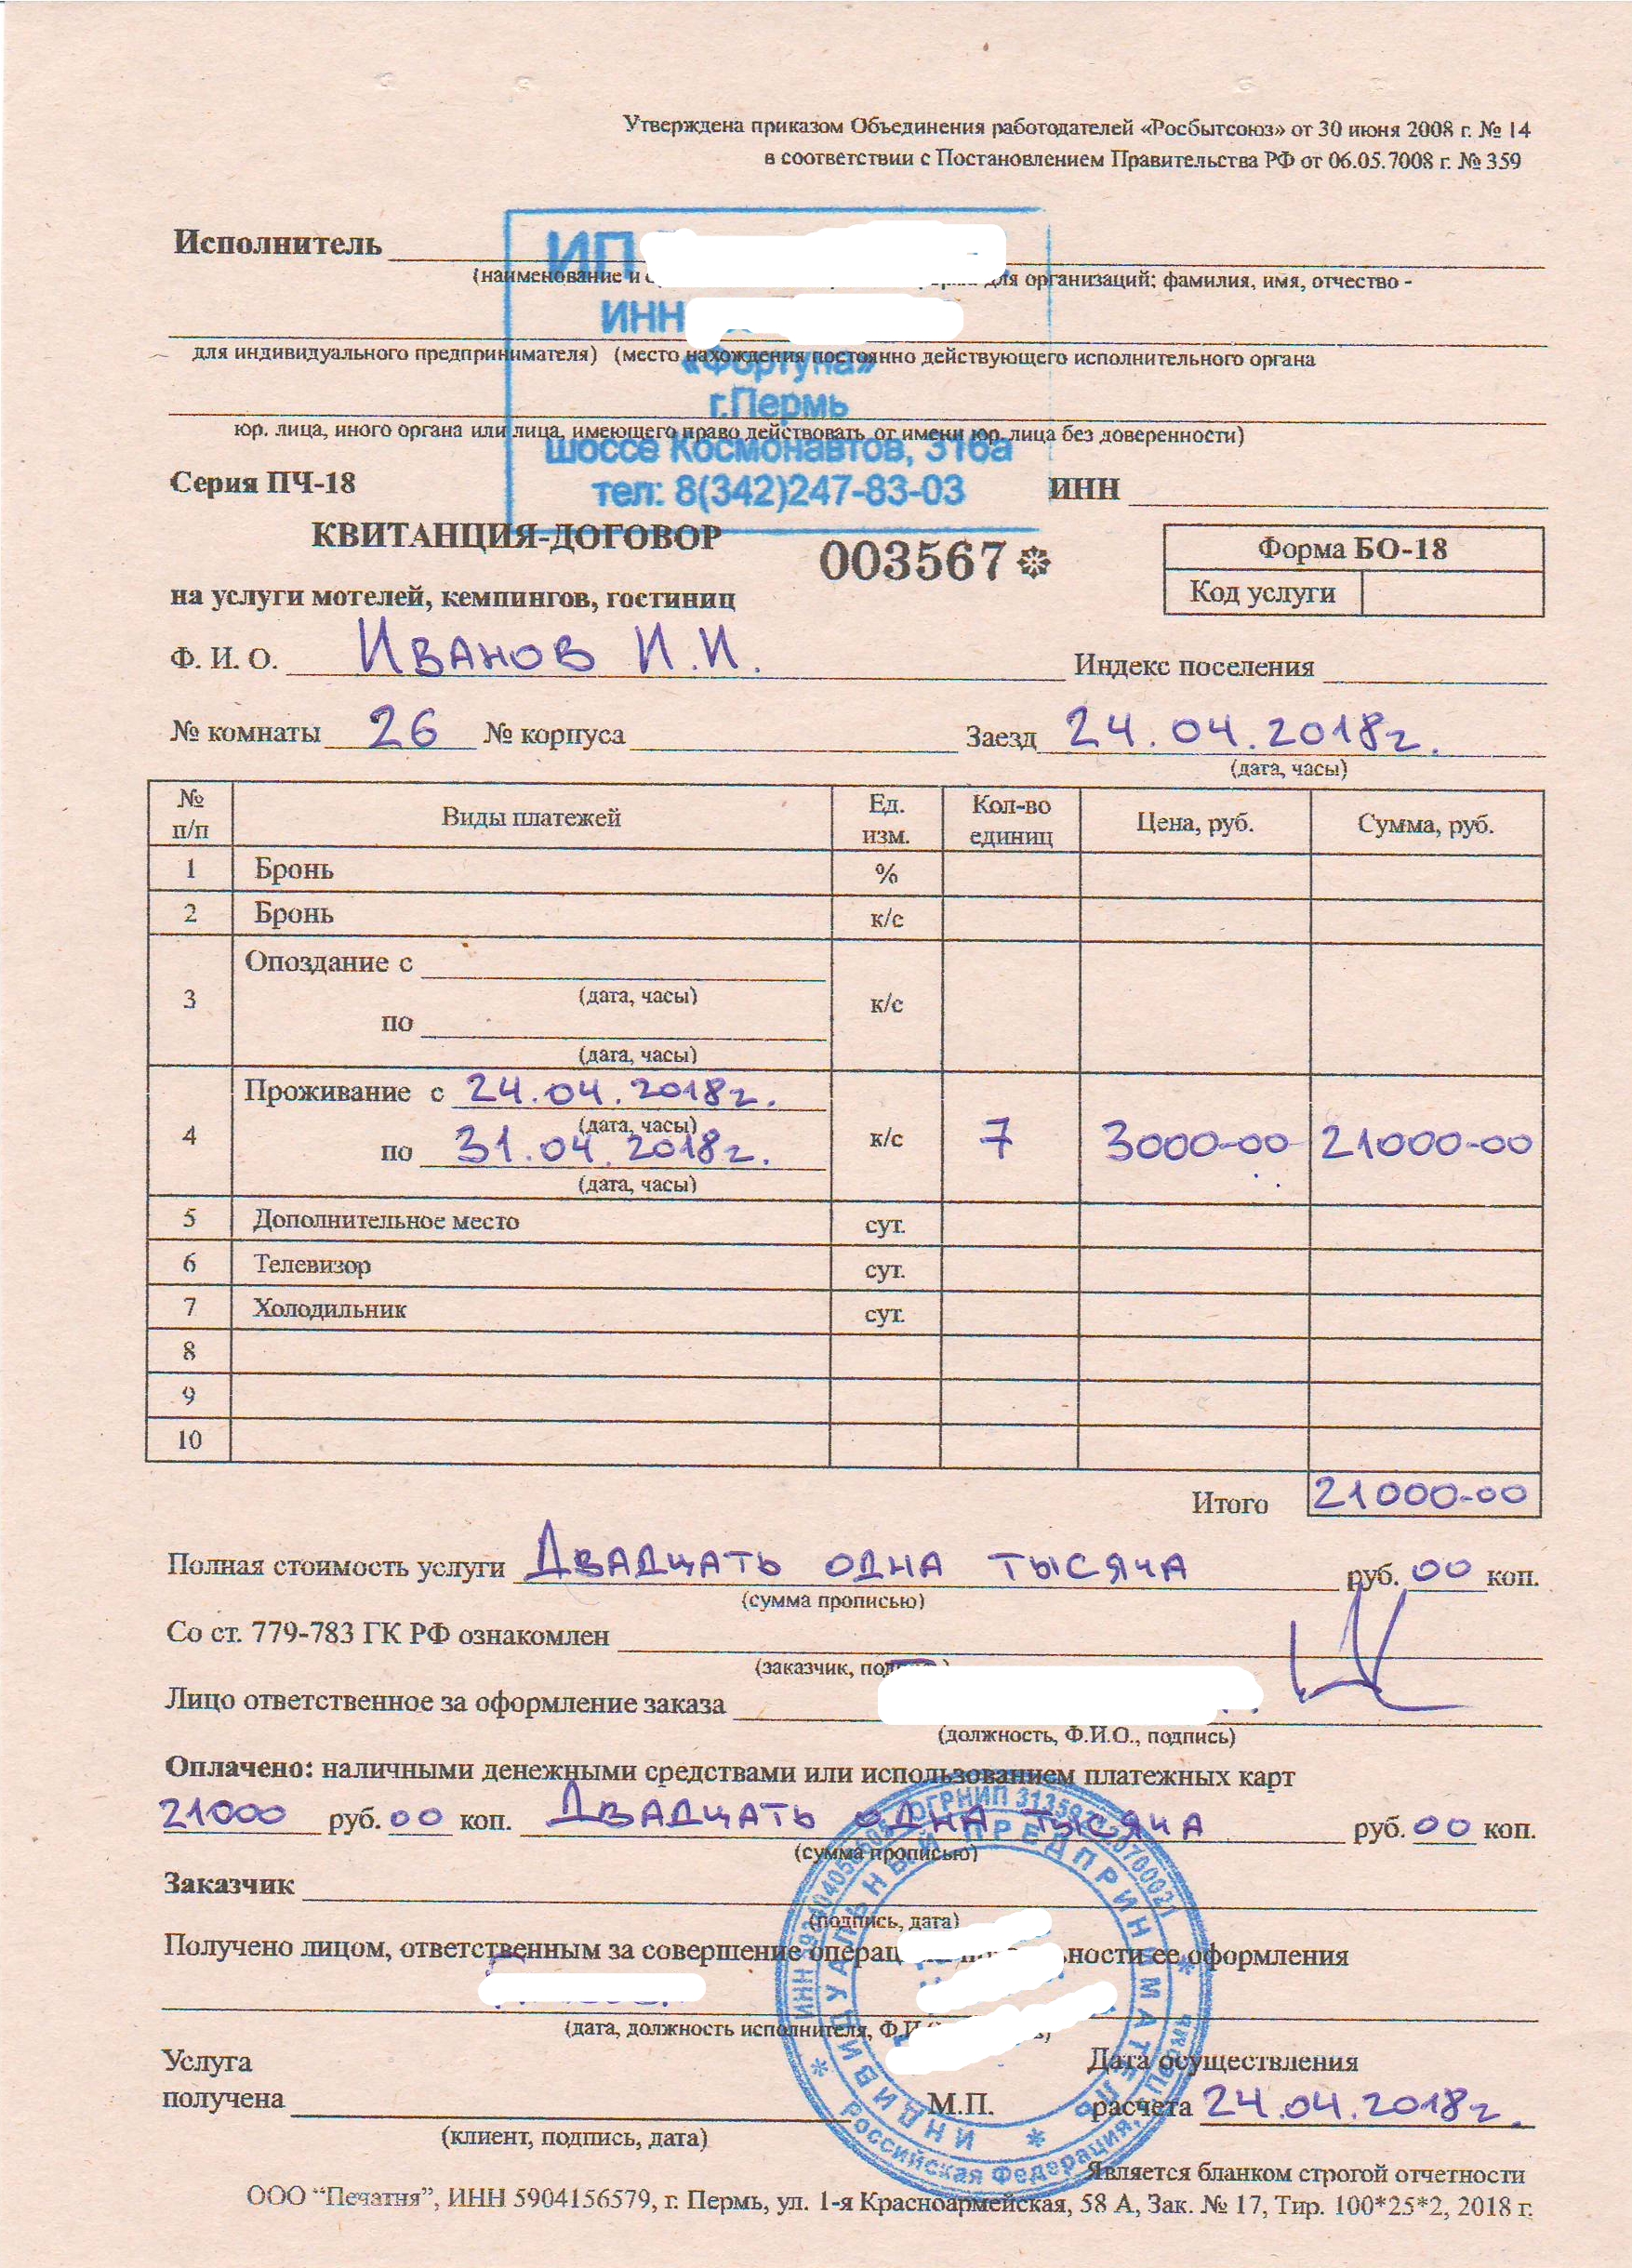 Утверждена приказом Объединения работодателей «Росбытсоюз» от 30 июня 2008 г. № 14
в соответствии с Постановлением Правительства РФ от 06.05.7008 г. № 359
Исполнитель
ИП
(наименование и для организаций; фамилия, имя, отчество -
ИНН
для индивидуального предпринимателя) (место нахождения постоянно действующего исполнительного органа
«Фортуна»
г.Пермь
юр. лица, иного органа или лица, имеющего право действовать от имени юр. лица без доверенности)
шоссе Космонавтов, 316а
тел: 8(342)247-83-03
Серия ПЧ-18 ИНН
КВИТАНЦИЯ-ДОГОВОР 003567
Форма БО-18
Код услуги
на услуги мотелей, кемпингов, гостиниц
Ф. И. О. Иванов И.И. Индекс поселения
№ комнаты 26 № корпуса Заезд 24.04.2018г.
(дата, часы)
№ п/п Виды платежей Ед. изм. Кол-во единиц Цена, руб. Сумма, руб.
1 Бронь %
2 Бронь к/с
3 Опоздание с к/с
(дата, часы)
по
(дата, часы)
4 Проживание с 24.04.2018г. к/с 7 3000-00 21000-00
(дата, часы)
по 31.04.2018г.
(дата, часы)
5 Дополнительное место сут.
6 Телевизор сут.
7 Холодильник сут.
8
9
10
Итого 21000-00
Полная стоимость услуги Двадцать одна тысяча руб. 00 коп.
(сумма прописью)
Со ст. 779-783 ГК РФ ознакомлен
(заказчик,
Лицо ответственное за оформление заказа
(должность, Ф.И.О., подпись)
Оплачено: наличными денежными средствами или использованием платежных карт
21000 руб. 00 коп. Двадцать одна тысяча руб. 00 коп.
(сумма прописью)
Заказчик
(подпись, дата)
Получено лицом, ответственным за совершение оформления
(дата, должность исполнителя,
Услуга
получена
(клиент, подпись, дата)
М.П.
Дата осуществления
расчета 24.04.2018г.
ИНДИВИДУАЛЬНЫЙ ПРЕДПРИНИМАТЕЛЬ
ИНН
ОГРНИП
Российская Федерация,
Является бланком строгой отчетности
ООО “Печатня”, ИНН 5904156579, г. Пермь, ул. 1-я Красноармейская, 58 А, Зак. № 17, Тир. 100*25*2, 2018 г.